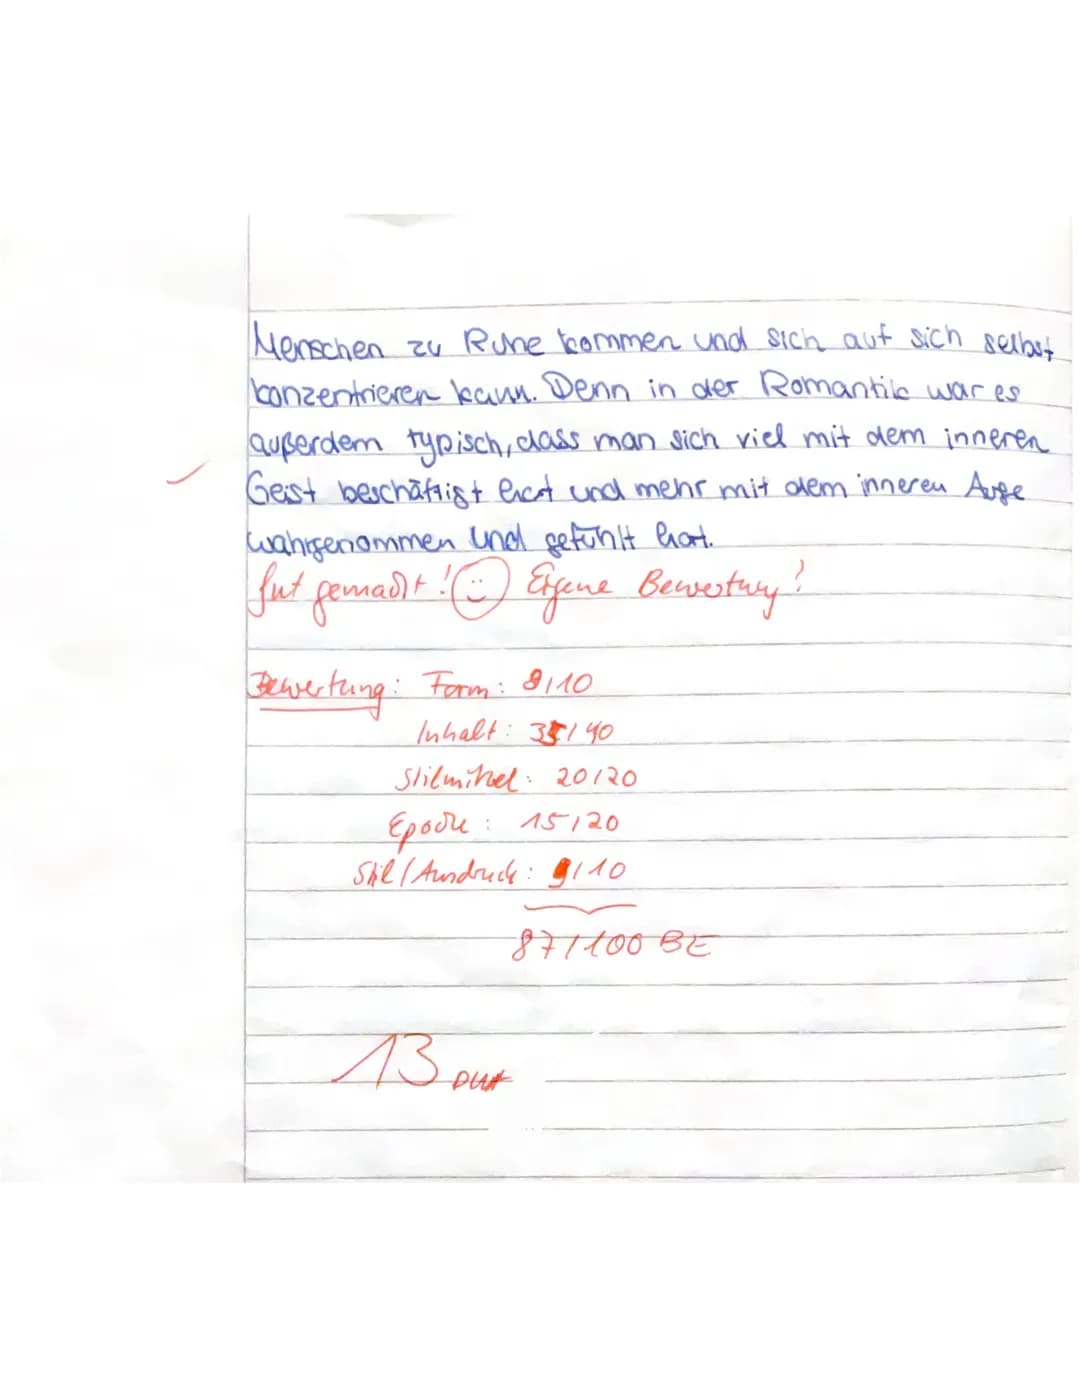 Menschen zu Ruhe kommen und sich auf sich selbst
konzentrieren kann. Denn in der Romantik war es
außerdem typisch, dass man sich viel mit dem inneren
Geist beschäftigt hat und mehr mit dem inneren Auge
wahrgenommen und gefühlt hat.
Gut gemacht! Eigene Bewertung?
Bewertung: Form: 8/10
Inhalt: 35/40
Stilmittel: 20/20
Epoche: 15/20
Stil/Ausdruck: 9/10
87/100 BE
13